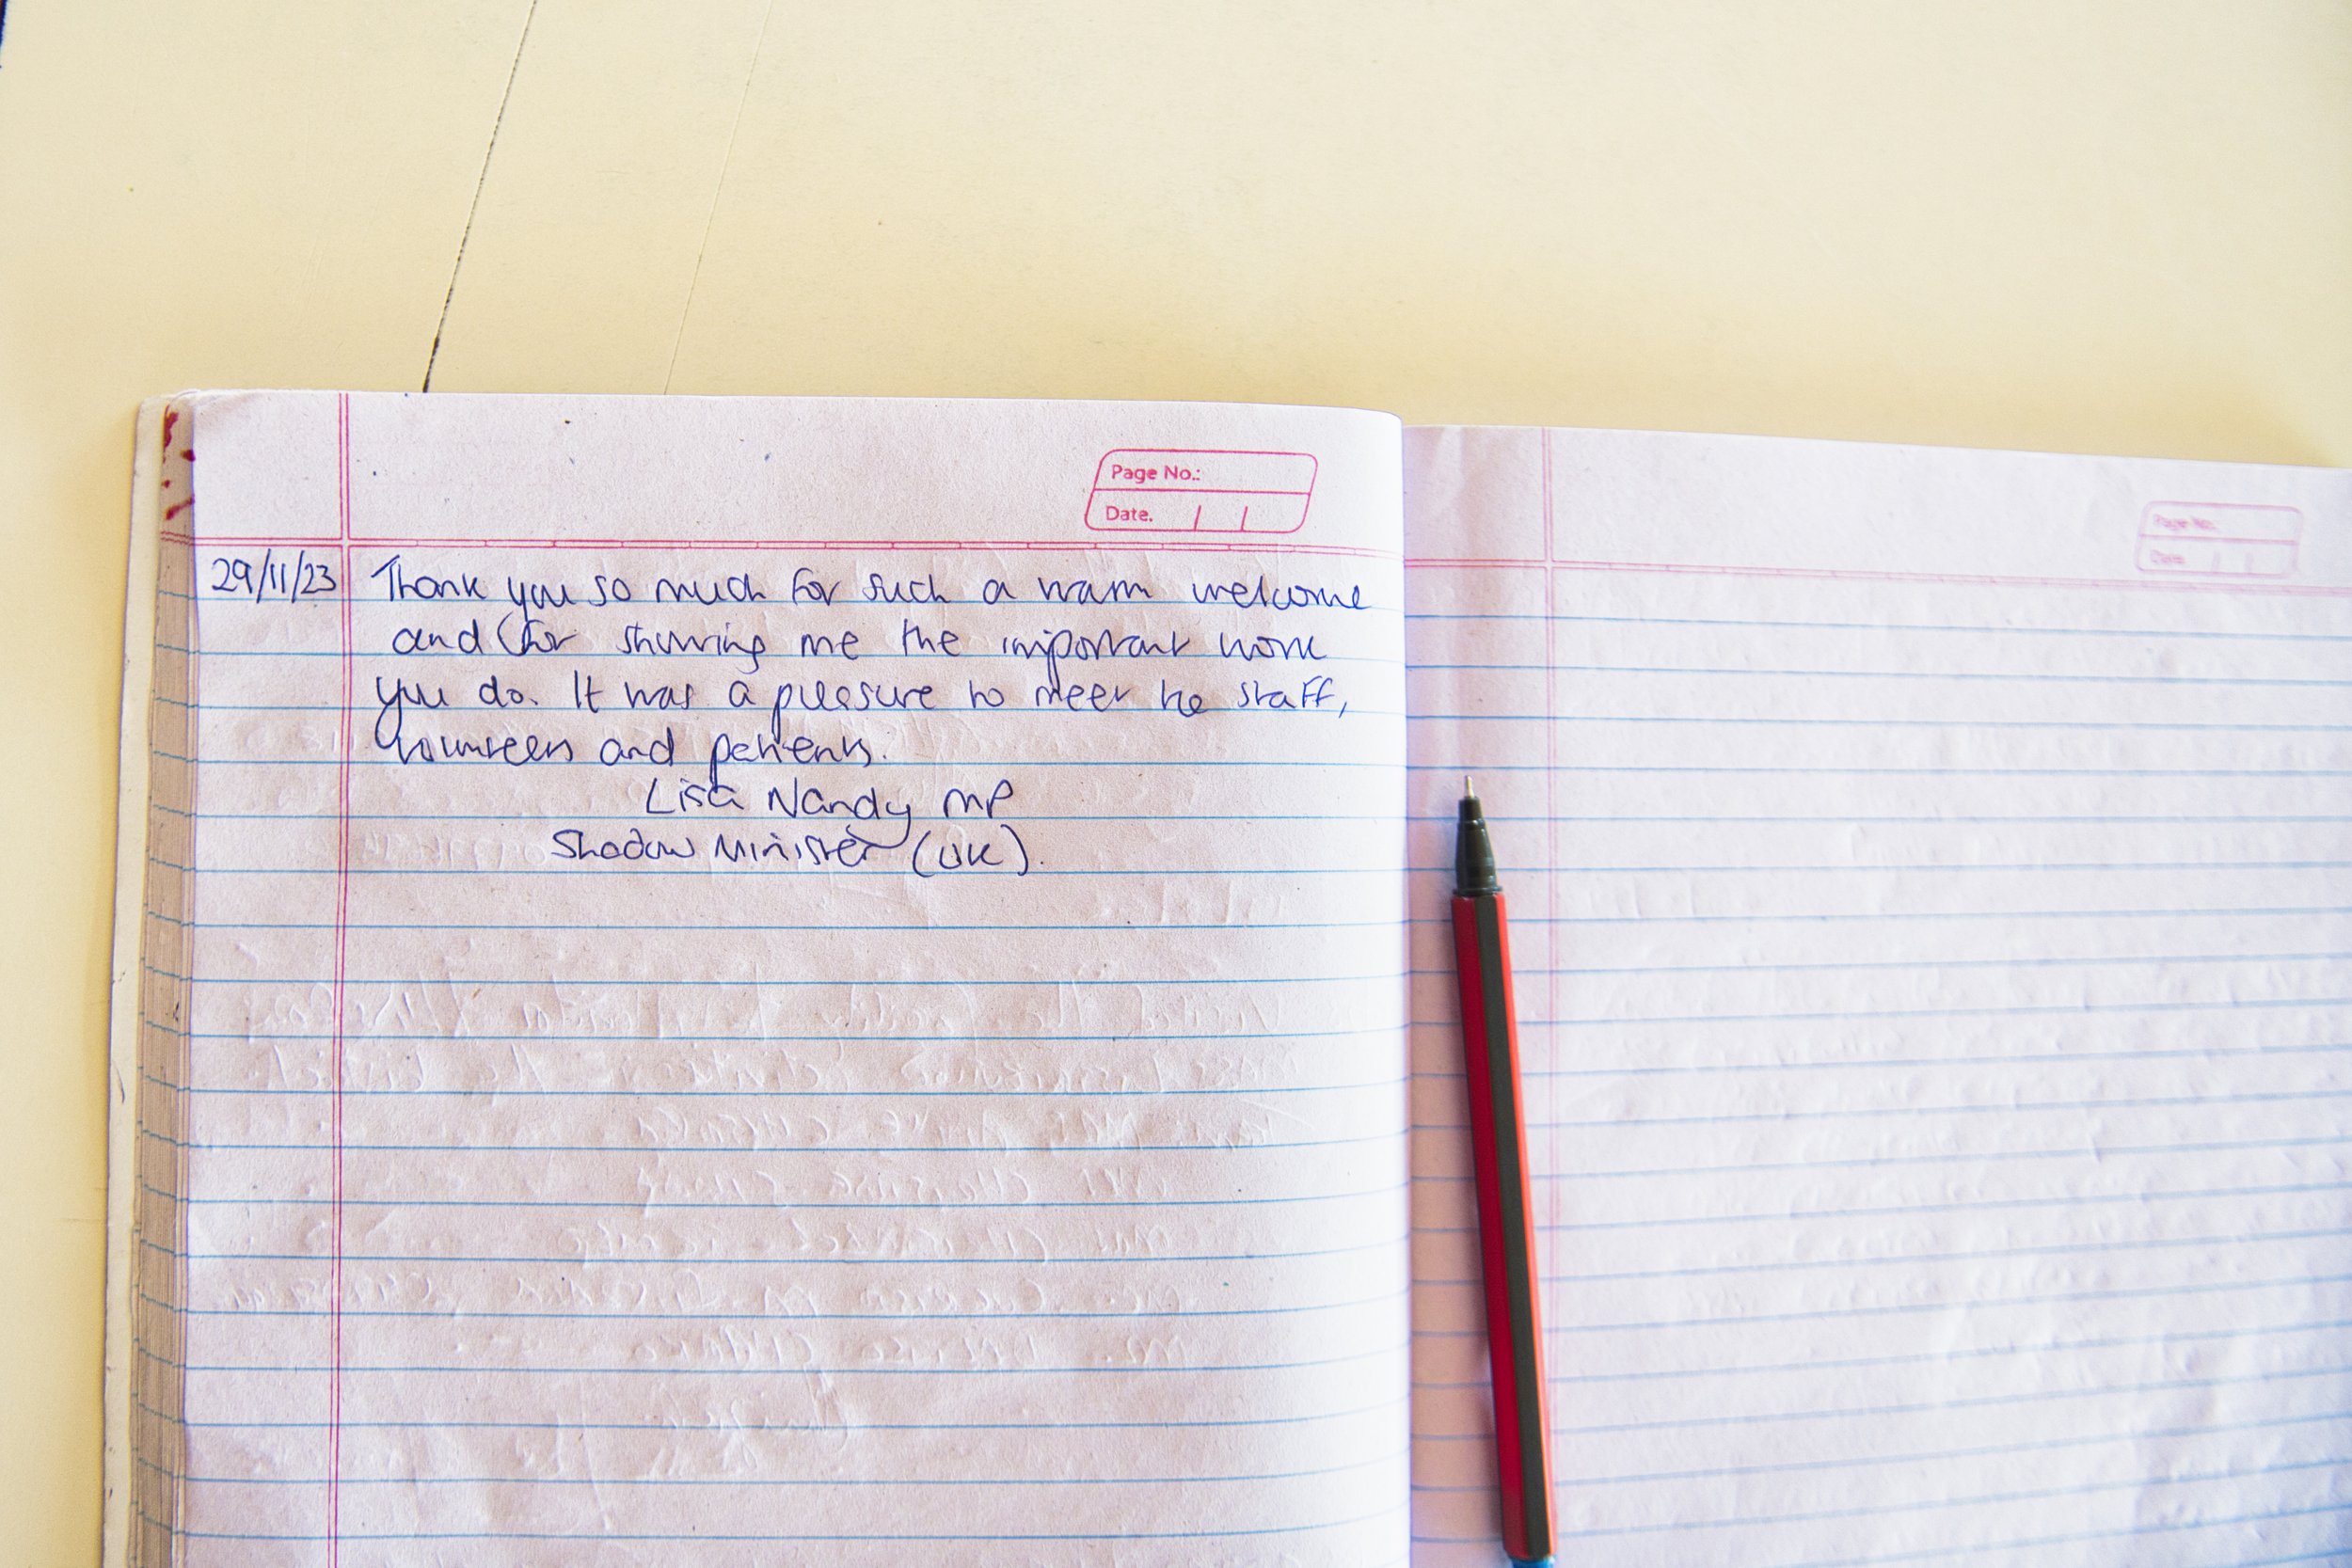 Page No.:
Date.
29/11/23 Thank you so much for such a warm welcome
and for showing me the important work
you do. It was a pleasure to meet the staff,
volunteers and patients.
Lisa Nandy MP
Shadow Minister (UK).
Page No.
Date